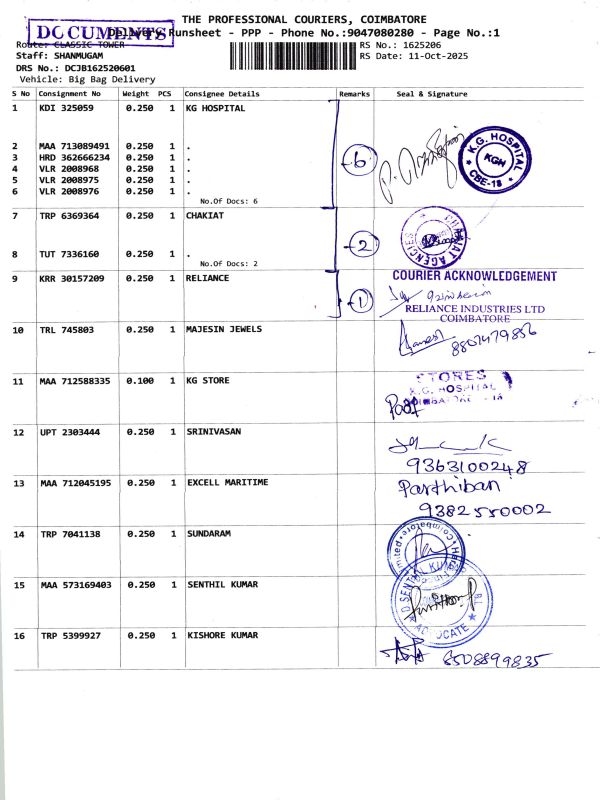 THE PROFESSIONAL COURIERS, COIMBATORE
DOCUMENTS
Delivery Runsheet - PPP - Phone No.:9047080280 - Page No.:1
Route: CLASSIC TOWER RS No.: 1625206
Staff: SHANMUGAM RS Date: 11-Oct-2025
DRS No.: DCJB162520601
Vehicle: Big Bag Delivery
S No Consignment No Weight PCS Consignee Details Remarks Seal & Signature
1 KDI 325059 0.250 1 KG HOSPITAL
2 MAA 713089491 0.250 1 .
3 HRD 362666234 0.250 1 .
4 VLR 2008968 0.250 1 .
5 VLR 2008975 0.250 1 .
6 VLR 2008976 0.250 1 .
No.Of Docs: 6
6
K.G. HOSPITAL
KGH
CBE-18
7 TRP 6369364 0.250 1 CHAKIAT
8 TUT 7336160 0.250 1 .
No.Of Docs: 2
2
CHAKIAT AGENCIES
9 KRR 30157209 0.250 1 RELIANCE
1
COURIER ACKNOWLEDGEMENT
RELIANCE INDUSTRIES LTD
COIMBATORE
10 TRL 745803 0.250 1 MAJESIN JEWELS
11 MAA 712588335 0.100 1 KG STORE
STORES
K.G. HOSPITAL
12 UPT 2303444 0.250 1 SRINIVASAN
9363100248
13 MAA 712045195 0.250 1 EXCELL MARITIME
Parthiban
9382550002
14 TRP 7041138 0.250 1 SUNDARAM
15 MAA 573169403 0.250 1 SENTHIL KUMAR
ADVOCATE
16 TRP 5399927 0.250 1 KISHORE KUMAR
8508899835